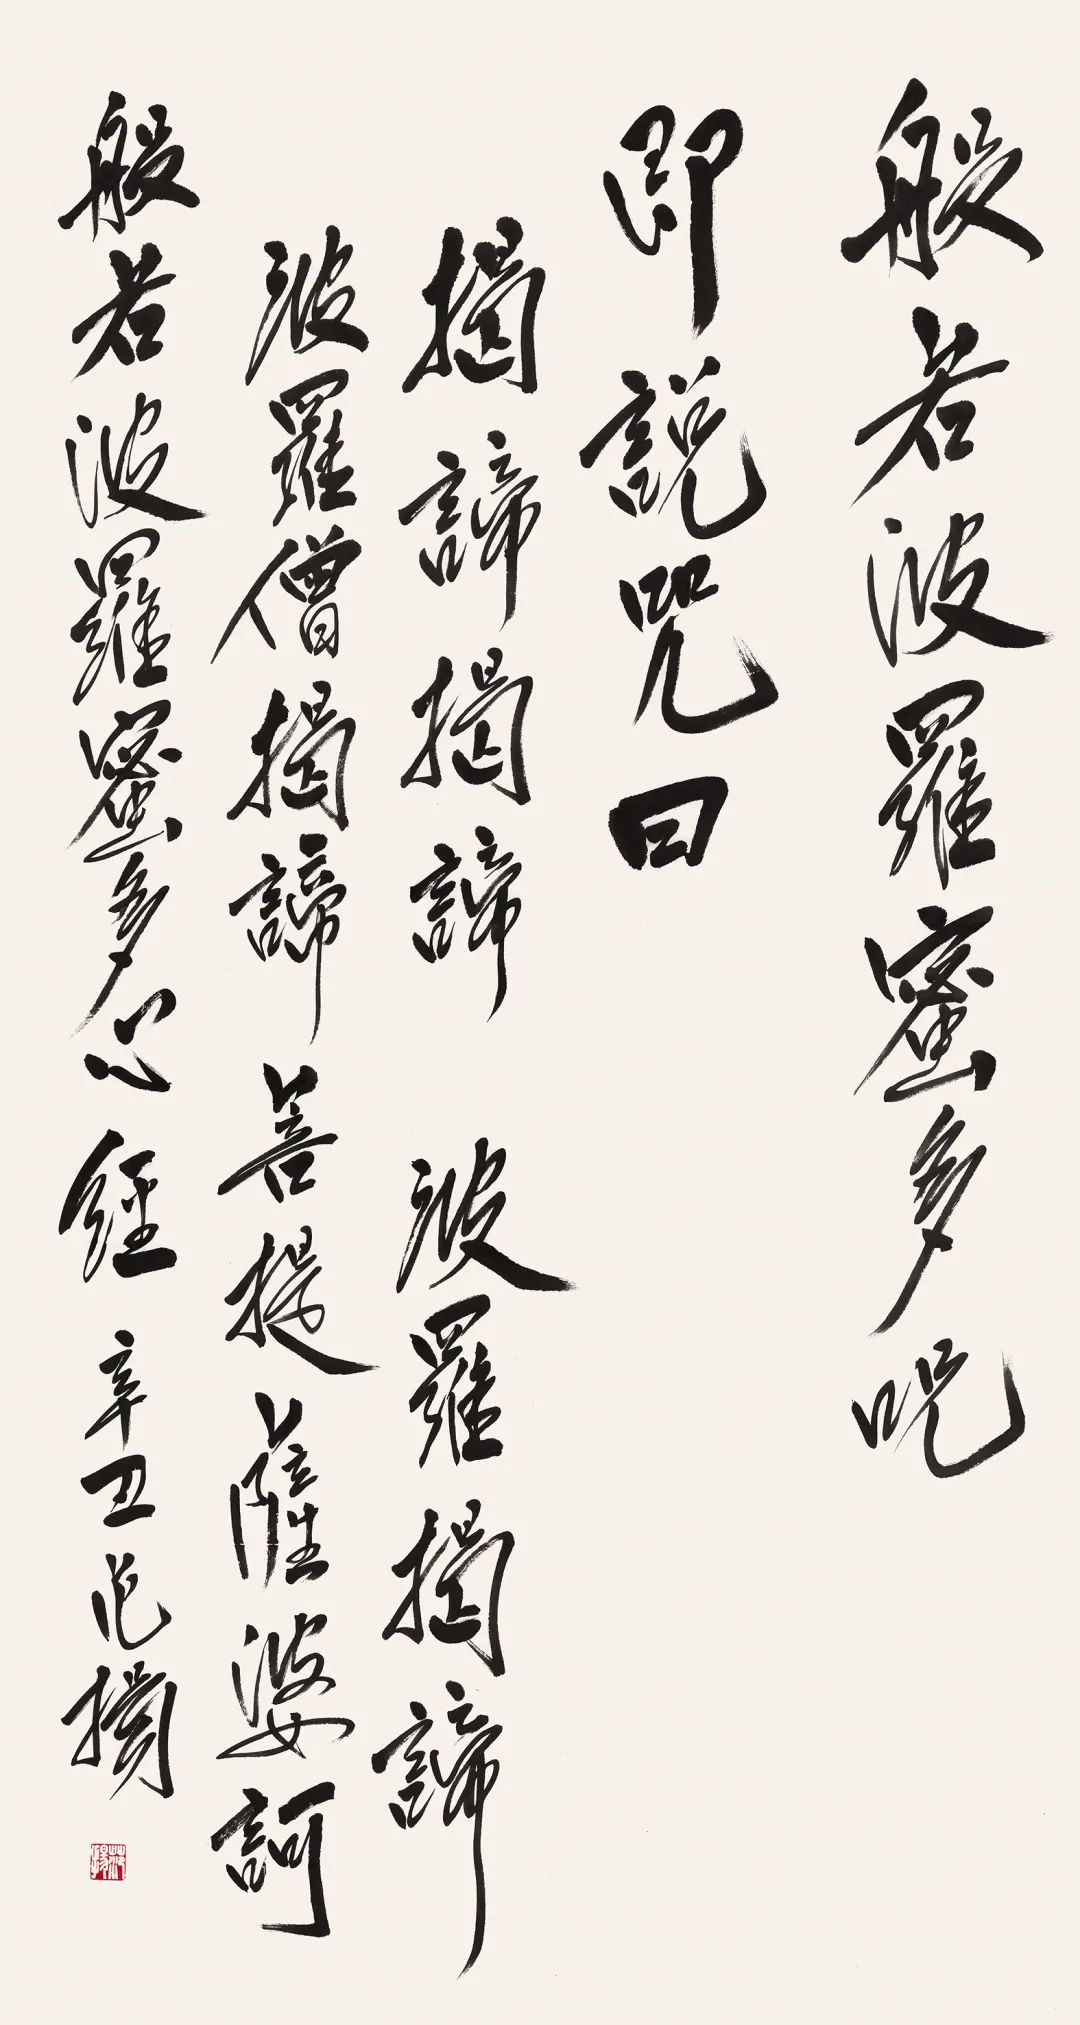 般若波羅蜜多呪
即說咒曰
揭諦揭諦 波羅揭諦
波羅僧揭諦 菩提薩婆訶
般若波羅蜜多心經 辛丑 范揚